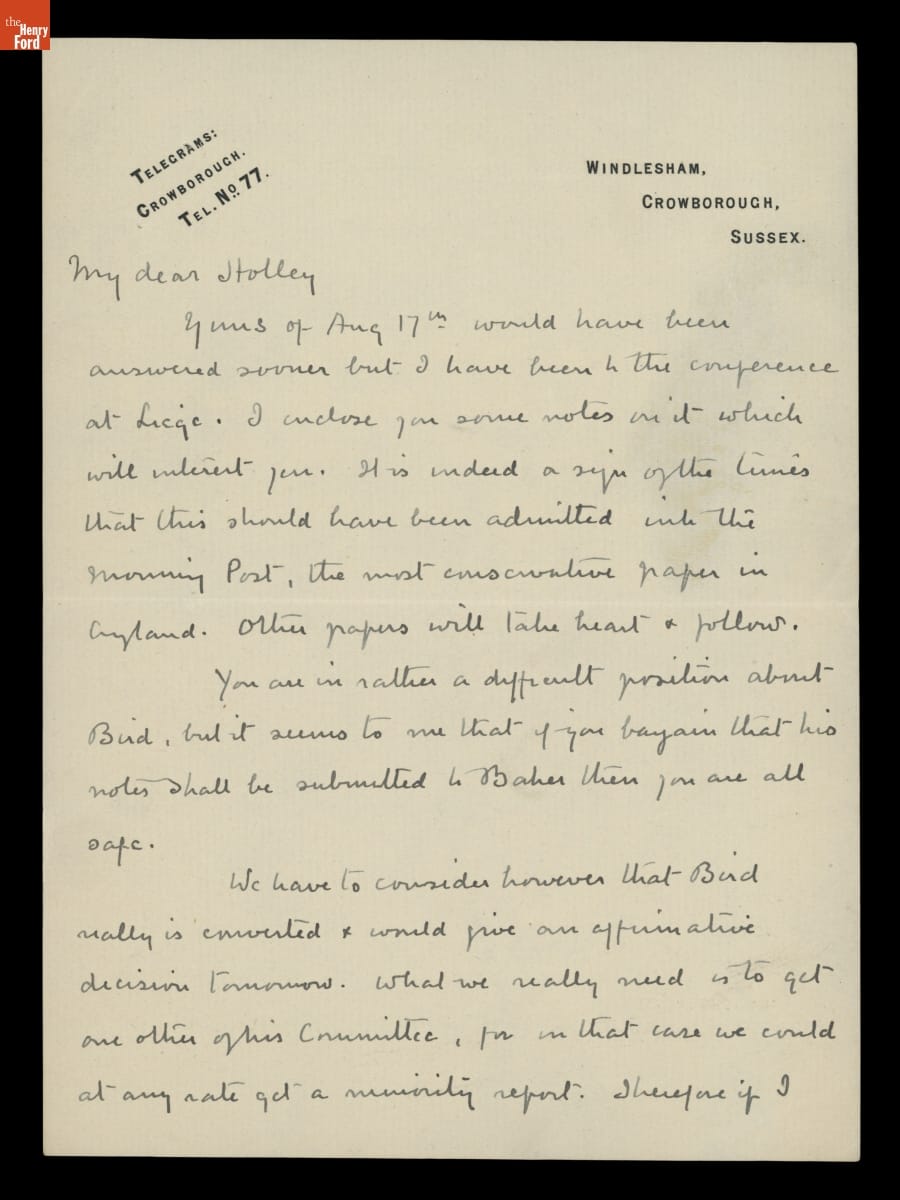 the
Henry
Ford
TELEGRAMS:
CROWBOROUGH.
TEL. No. 77.
WINDLESHAM,
CROWBOROUGH,
SUSSEX.
My dear Holley
Yours of Aug 17th would have been
answered sooner but I have been to the conference
at Liege. I enclose you some notes on it which
will interest you. It is indeed a sign of the times
that this should have been admitted into the
Morning Post, the most conservative paper in
England. Other papers will take heart & follow.
You are in rather a difficult position about
Bird, but it seems to me that if you bargain that his
notes shall be submitted to Baker then you are all
safe.
We have to consider however that Bird
really is converted & would give an affirmative
decision tomorrow. What we really need is to get
one other of his Committee, for in that case we could
at any rate get a minority report. Therefore if I